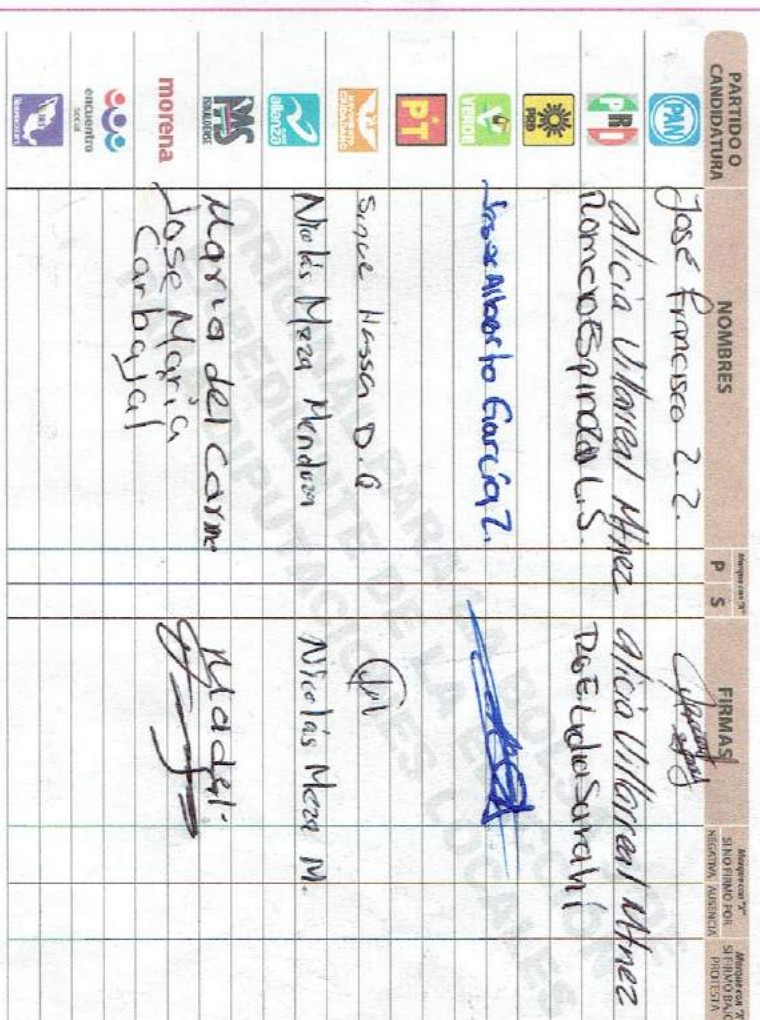 PARTIDO O CANDIDATURA
NOMBRES
Marque con "X"
P S
FIRMAS
Marque con "X" SI NO FIRMÓ POR NEGATIVA AUSENCIA
Marque con "X" SI FIRMÓ BAJO PROTESTA
PAN
José Francisco Z. Z.
PRI
Alicia Villarreal Mtnez
Alicia Villarreal Mtnez
Romero Espinoza L.S.
Lydia Sarahi
PRD
VERDE
Alberto García Z.
PT
MOVIMIENTO CIUDADANO
Hassa D. G
nueva alianza
Nicolás Meza Mendoza
Nicolás Meza M.
PAS
SINALOENSE
María del Carme
Madel.
morena
Jose Maria
Carbajal
encuentro social
ORIGINAL PARA LA BOLSA DE
EXPEDIENTE DE LA ELECCIÓN
PARA DIPUTACIONES LOCALES